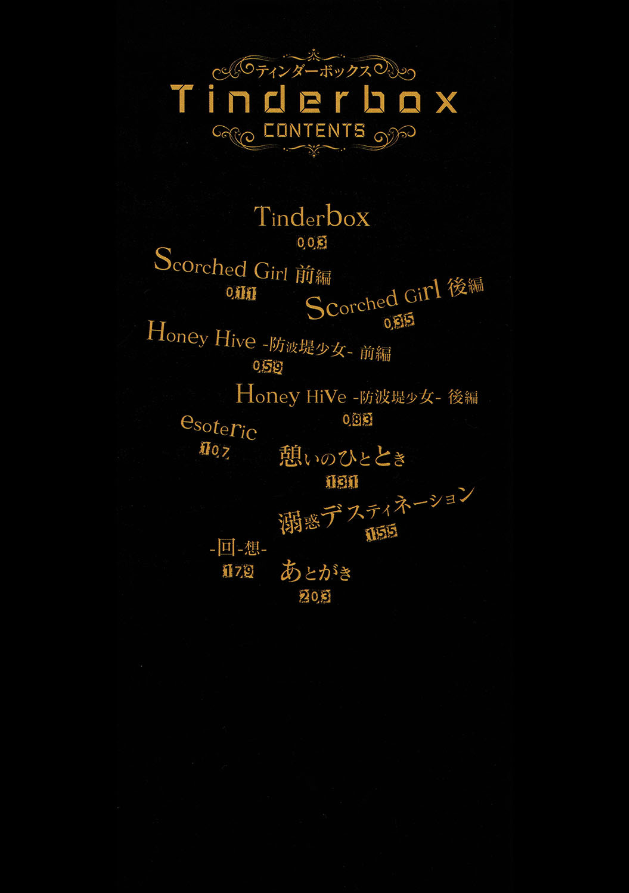 ティンダーボックス
Tinderbox
CONTENTS
Tinderbox
003
Scorched Girl 前編
011
Scorched Girl 後編
035
Honey Hive -防波堤少女- 前編
059
Honey Hive -防波堤少女- 後編
083
esoteric
107
憩いのひととき
131
溺惑デスティネーション
155
-回-想-
179
あとがき
203